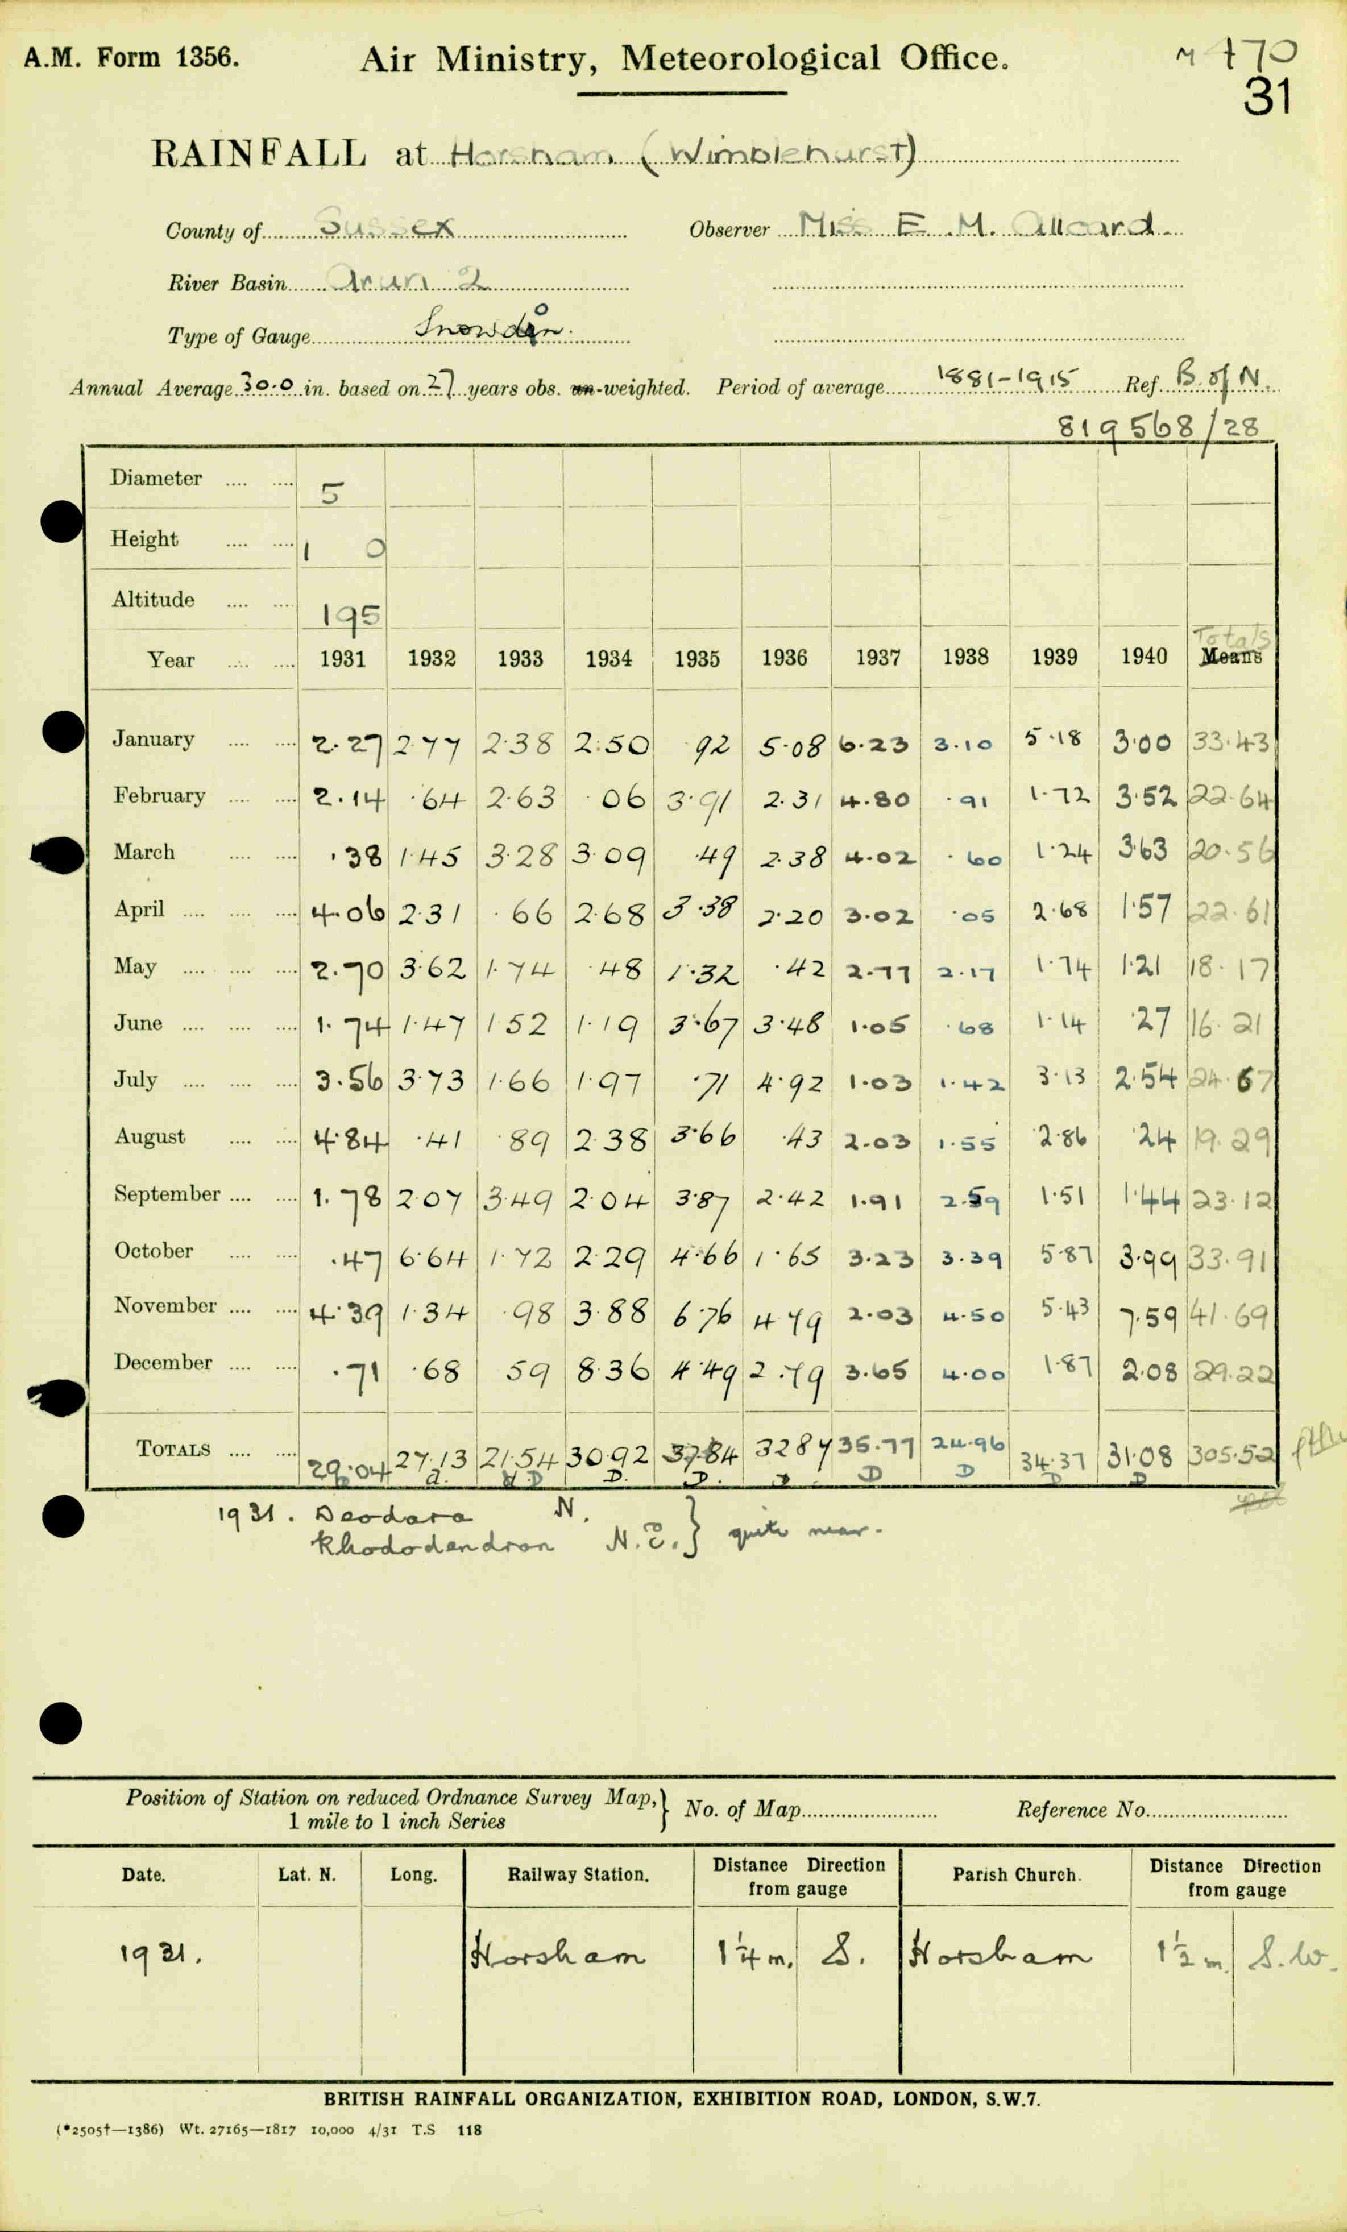 A.M. Form 1356.
Air Ministry, Meteorological Office.
M 470
31
RAINFALL at Horsham (Wimblehurst)
County of Sussex Observer Miss E. M. Allcard.
River Basin Arun 2
Type of Gauge Snowdon.
Annual Average 30.0 in. based on 27 years obs. un-weighted. Period of average 1881-1915 Ref. B. of N.
819568/28
Diameter .... .... 5
Height .... .... 1 0
Altitude .... .... 195
Totals
Year .... .... 1931 1932 1933 1934 1935 1936 1937 1938 1939 1940 Means
January .... .... 2.27 2.77 2.38 2.50 .92 5.08 6.23 3.10 5.18 3.00 33.43
February .... .... 2.14 .64 2.63 .06 3.91 2.31 4.80 .91 1.72 3.52 22.64
March .... .... .38 1.45 3.28 3.09 .49 2.38 4.02 .60 1.24 3.63 20.56
April .... .... .... 4.06 2.31 .66 2.68 3.38 2.20 3.02 .05 2.68 1.57 22.61
May .... .... .... 2.70 3.62 1.74 .48 1.32 .42 2.77 2.17 1.74 1.21 18.17
June .... .... .... 1.74 1.47 1.52 1.19 3.67 3.48 1.05 .68 1.14 .27 16.21
July .... .... .... 3.56 3.73 1.66 1.97 .71 4.92 1.03 1.42 3.13 2.54 24.67
August .... .... 4.84 .41 .89 2.38 3.66 .43 2.03 1.55 2.86 .24 19.29
September .... .... 1.78 2.07 3.49 2.04 3.87 2.42 1.91 2.59 1.51 1.44 23.12
October .... .... .47 6.64 1.72 2.29 4.66 1.65 3.23 3.39 5.87 3.99 33.91
November .... .... 4.39 1.34 .98 3.88 6.76 4.79 2.03 4.50 5.43 7.59 41.69
December .... .... .71 .68 .59 8.36 4.49 2.79 3.65 4.00 1.87 2.08 29.22
TOTALS .... .... 29.04 27.13 21.54 30.92 37.84 32.87 35.77 24.96 34.37 31.08 305.52
D d. D D. D. D D D D
1931. Deodara N.
Rhododendron N.E. } quite near.
Position of Station on reduced Ordnance Survey Map, } No. of Map Reference No.
1 mile to 1 inch Series
Date. Lat. N. Long. Railway Station. Distance Direction from gauge Parish Church. Distance Direction from gauge
1931. Horsham 1¼ m. S. Horsham 1½ m. S.W.
BRITISH RAINFALL ORGANIZATION, EXHIBITION ROAD, LONDON, S.W.7.
(*2505†—1386) Wt. 27165—1817 10,000 4/31 T.S 118